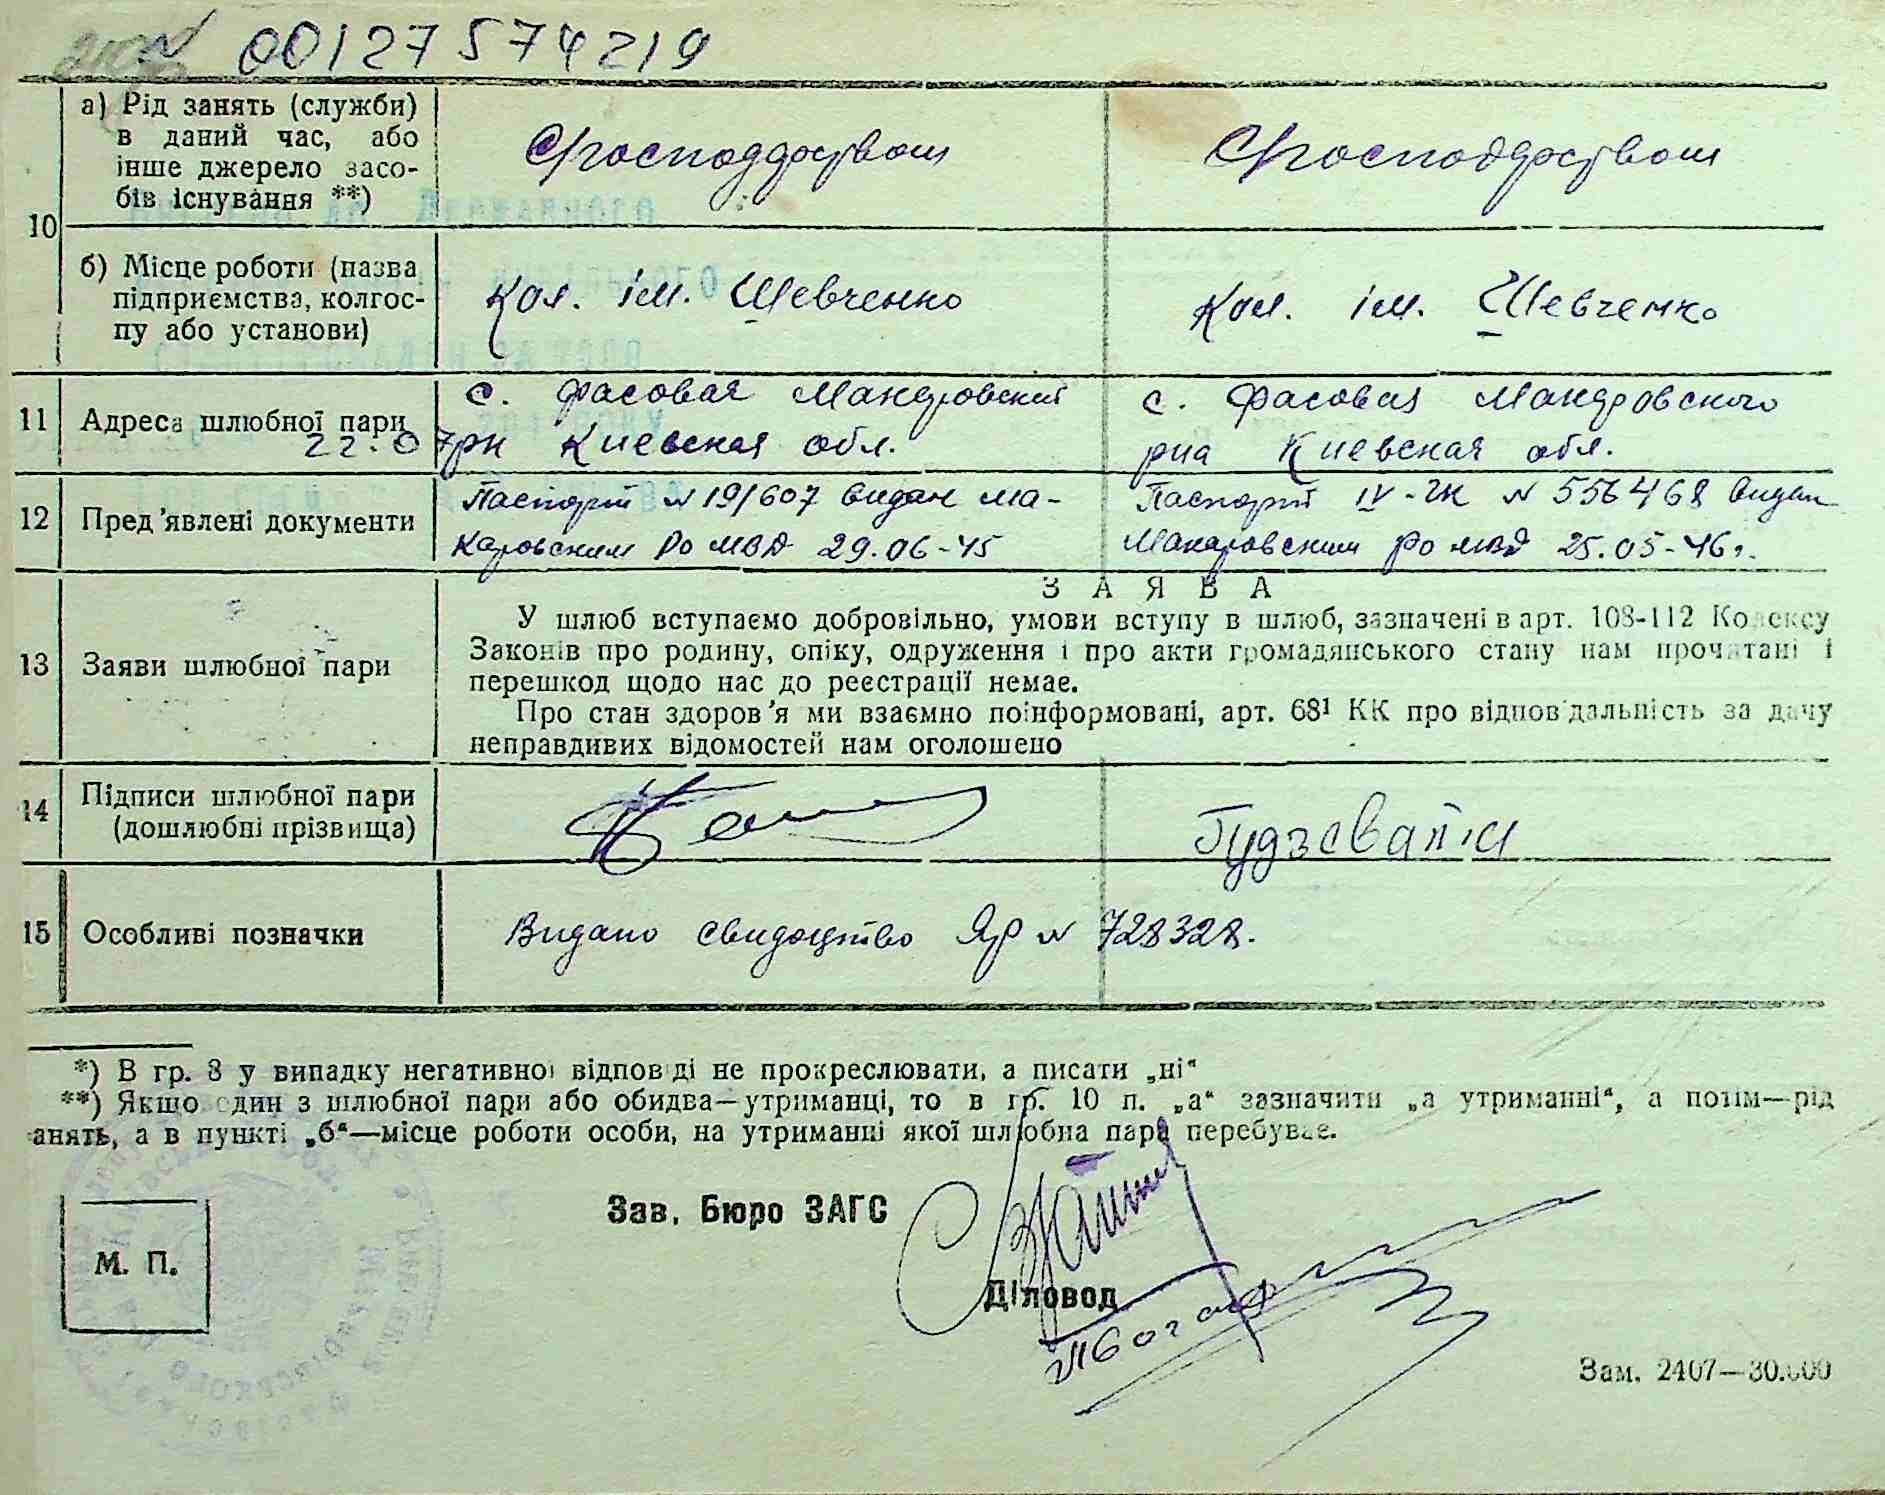 00127574219
а) Рід занять (служби)
в даний час, або
інше джерело засо-
бів існування **)
10
б) Місце роботи (назва
підприємства, колгос-
пу або установи)
Кол. ім. Шевченко
Кол. ім. Шевченко
11
Адреса шлюбної пари
22.07
с. Фасовая
рн Киевская обл.
с. Фасовая
рна Киевская обл.
12
Пред'явлені документи
Паспорт № 191607 видан Ма-
каровским Ро МВД 29.06-45
Паспорт IV-ЧК № 556468 видан
Макаровским Ро МВД 25.05-46г.
13
Заяви шлюбної пари
ЗАЯВА
У шлюб вступаємо добровільно, умови вступу в шлюб, зазначені в арт. 108-112 Кодексу
Законів про родину, опіку, одруження і про акти громадянського стану нам прочитані і
перешкод щодо нас до реєстрації немає.
Про стан здоров'я ми взаємно поінформовані, арт. 68¹ КК про відповідальність за дачу
неправдивих відомостей нам оголошено
14
Підписи шлюбної пари
(дошлюбні прізвища)
15
Особливі позначки
Видано свидоцтво ЯР № 728328.
*) В гр. 8 у випадку негативної відповіді не прокреслювати, а писати „ні“
**) Якщо один з шлюбної пари або обидва—утриманці, то в гр. 10 п. „а“ зазначити „а утриманні“, а потім—рід
анять, а в пункті „б“—місце роботи особи, на утриманні якої шлюбна пара перебуває.
Зав. Бюро ЗАГС
М. П.
Діловод
Зам. 2407—30.000